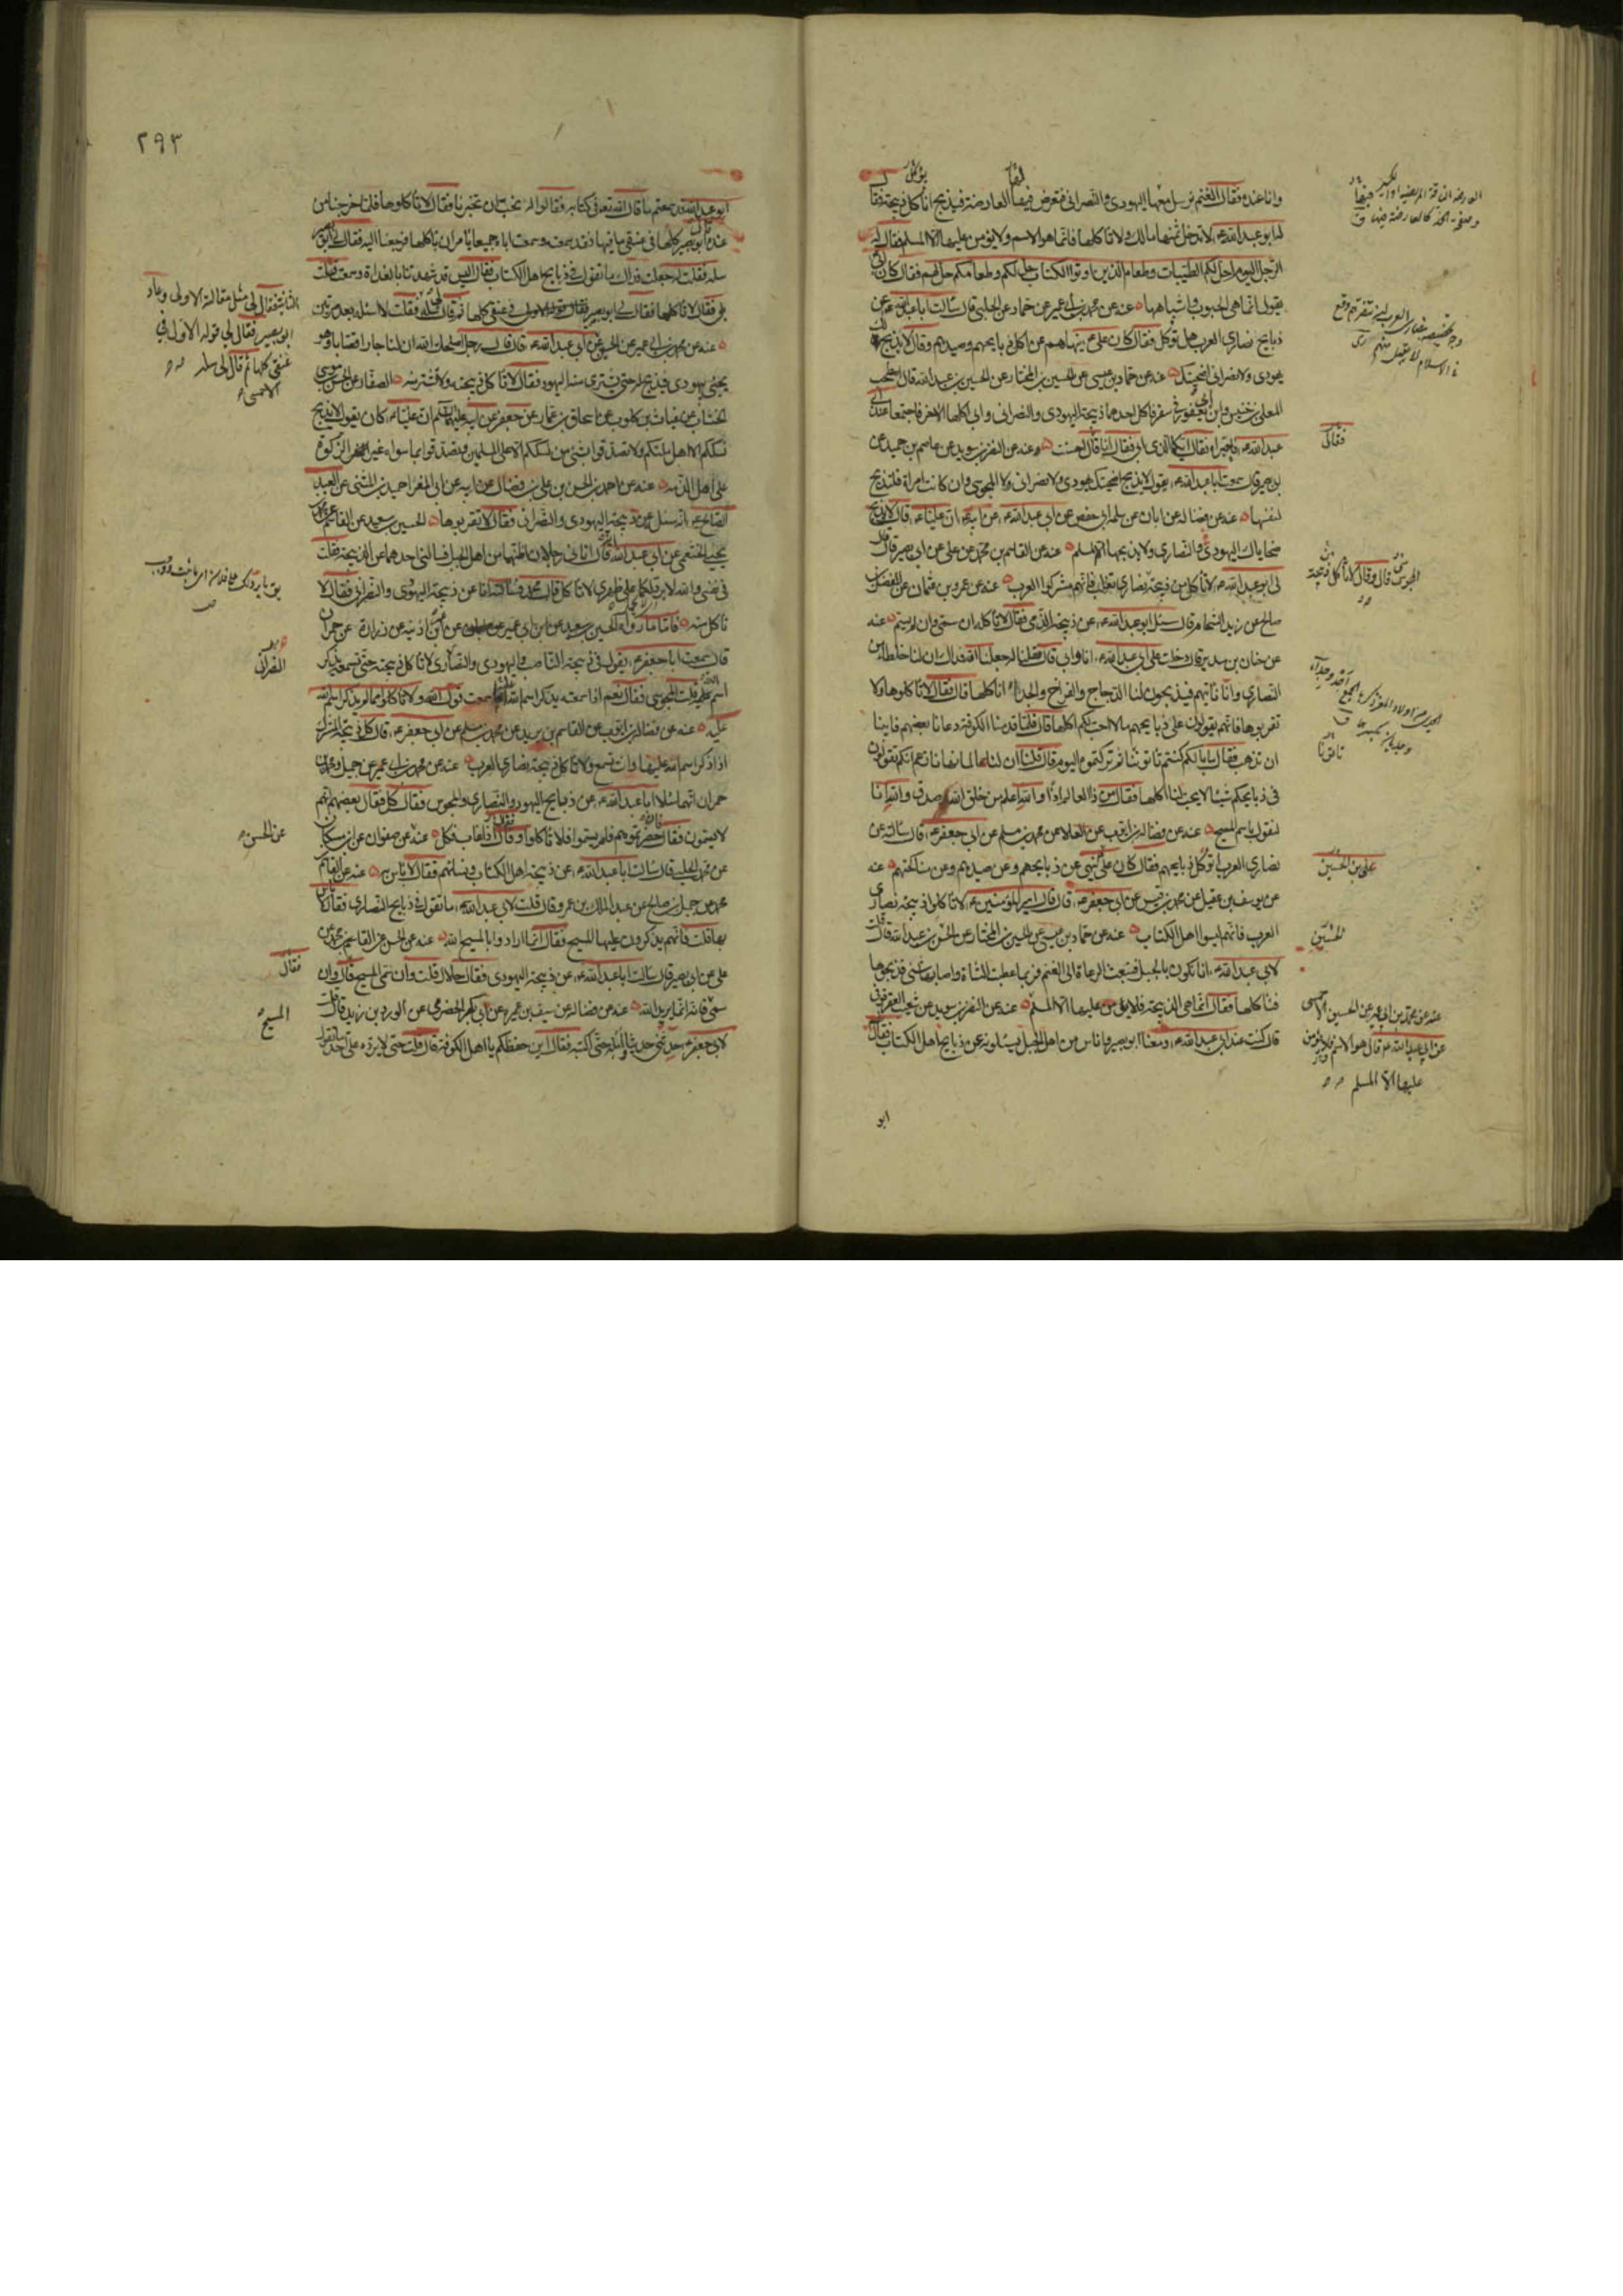 وانا عنده فقال الغنم نرسل معها اليهودي والنصراني فتعرض فيها العارضة فيذبح انأكل ذبيحته فقال
له ابو عبد الله ع لا تدخل ثمنها مالك ولا تأكلها فانما هو الاسم ولا يؤمن عليها الا المسلم فقال له
الرجل اليوم احل لكم الطيبات وطعام الذين اوتوا الكتاب حل لكم وطعامكم حل لهم فقال كان ابي
يقول انما هي الحبوب واشباهها عنه عن محمد بن ابي عمير عن حماد عن الحلبي قال سالت ابا عبد الله ع عن
ذبايح نصارى العرب هل تؤكل فقال كان علي ع ينهاهم عن اكل ذبايحهم وصيدهم وقال لا يذبح لك
يهودي ولا نصراني اضحيتك عنه عن حماد بن عيسى عن الحسين بن المختار عن الحسين بن عبد الله قال اصطحب
المعلى بن خنيس وابن ابي يعفور في سفر فاكل احدهما ذبيحة اليهودي والنصراني وابى اكلها الاخر فاجتمعا عند ابي
عبد الله ع فاخبراه فقال ايكما الذي ابى فقال انا قال احسنت وعنه عن النضر بن سويد عن عاصم بن حميد عن
ابي بصير قال سمعت ابا عبد الله ع يقول لا يذبح اضحيتك يهودي ولا نصراني ولا المجوسي وان كانت امراة فلتذبح
لنفسها عنه عن فضالة عن ابان عن سلمة ابي حفص عن ابي عبد الله ع عن ابيه ع ان عليا ع قال لا يذبح
ضحاياك اليهودي والنصارى ولا يذبحها الا المسلم عنه عن القاسم بن محمد عن علي عن ابي بصير قال قال
لي ابو عبد الله ع لا تأكل من ذبيحة نصارى تغلب فانهم مشركوا العرب عنه عن عمرو بن عثمان عن المفضل بن
صالح عن زيد الشحام قال سئل ابو عبد الله ع عن ذبيحة الذمي فقال لا تأكله ان سمى وان لم يسم عنه
عن حنان بن سدير قال دخلت على ابي عبد الله ع انا وابي فقلنا له جعلنا الله فداك ان لنا خلطاء من
النصارى وانا ناتيهم فيذبحون لنا الدجاج والفراخ والجداء انأكلها قال فقال لا تأكلوها ولا
تقربوها فانهم يقولون على ذبايحهم ما لا احب لكم اكلها قال فلما قدمنا الكوفة دعانا بعضهم فابينا
ان نذهب فقال ما بالكم كنتم تاتونا ثم تركتموه اليوم قال قلنا ان لنا عالما نهانا زعم انكم تقولون
في ذبايحكم شيئا لا يحب لنا اكلها فقال من ذا العالم اذا والله اعلم من خلق الله صدق والله انا
لنقول باسم المسيح عنه عن فضالة بن ايوب عن العلا عن محمد بن مسلم عن ابي جعفر ع قال سالته عن
نصارى العرب اتؤكل ذبايحهم فقال كان علي ينهى عن ذبايحهم وعن صيدهم وعن مناكحتهم عنه
عن يوسف بن عقيل عن محمد بن قيس عن ابي جعفر ع قال قال امير المؤمنين ع لا تأكلوا ذبيحة نصارى
العرب فانهم ليسوا اهل الكتاب عنه عن حماد بن عيسى عن الحسين بن المختار عن الحسين بن عبد الله قال قلت
لابي عبد الله ع انا نكون بالجبل فنبعث الرعاة الى الغنم فربما عطبت الشاة واصابها شي فذبحوها
فنأكلها فقال انما هي الذبيحة فلا يؤمن عليها الا المسلم عنه عن النضر بن سويد عن شعيب العقرقوفي
قال كنت عند ابي عبد الله ع ومعنا ابو بصير واناس من اهل الجبل يسئلونه عن ذبايح اهل الكتاب فقال
ابو
فقال
المجوسي قال وقال لا تأكل ذبيحة
علي بن الحسين
الحسين
عنه عن محمد بن ابي عمير عن الحسين الاحمسي
عن ابي عبد الله ع قال هو الاسم فلا يؤمن
عليها الا المسلم
٢٩٣
ابو عبد الله قد سمعتم ما قال الله تعالى في كتابه فقالوا له نحب ان تخبرنا فقال لا تأكلوها فلما خرجنا من
عنده قال ابو بصير كلها في عنقي ما فيها فقد سمعته وسمعت اباه جميعا يامران باكلها فرجعنا اليه فقال لي ابو بصير
سله فقلت له جعلت فداك ما تقول في ذبايح اهل الكتاب فقال اليس قد شهدتنا بالغداة وسمعت قلت
بلى فقال لا تأكلها فقال لي ابو بصير في عنقي كلها ثم قال لي سله فقلت لا اسئله بعد مرتين
عنه عن محمد بن ابي عمير عن الحسين عن ابي عبد الله ع قال قال له رجل اصلحك الله ان لنا جارا قصابا وهو
يجيئ بيهودي فيذبح له حتى يشتري منه اليهود فقال لا تأكل ذبيحته ولا تشتر منه الصفار عن الحسن بن موسى
الخشاب عن غياث بن كلوب عن اسحاق بن عمار عن جعفر عن ابيه عليهما السلم ان عليا ع كان يقول لا يذبح
نسككم الا اهل ملتكم ولا تصدقوا بشي من نسككم الا على المسلمين وتصدقوا بما سواه غير الزكوة
على اهل الذمة عنه عن احمد بن الحسن بن علي بن فضال عن ابيه عن ابي المغرا حميد بن المثنى عن العبد
الصالح ع انه سئل عن ذبيحة اليهودي والنصراني فقال لا تقربوها الحسين بن سعيد عن القاسم بن محمد عن
يحيى الخثعمي عن ابي عبد الله قال اتاني رجلان اظنهما من اهل الجبل فسالني احدهما عن الذبيحة فقلت
في نفسي والله لا برد لكما على ظهري لا تأكل قال محمد فسالته انا عن ذبيحة اليهودي والنصراني فقال لا
تأكل منه فاما ما رواه الحسين بن سعيد عن ابن ابي عمير عن عمر بن اذينة عن زرارة عن حمران
قال سمعت ابا جعفر ع يقول في ذبيحة الناصب واليهودي والنصارى لا تأكل ذبيحته حتى تسمعه يذكر
اسم الله قلت المجوسي فقال نعم اذا سمعته يذكر اسم الله اما سمعت قول الله ولا تأكلوا مما لم يذكر اسم الله
عليه عنه عن فضالة بن ايوب عن القاسم بن بريد عن محمد بن مسلم عن ابي جعفر ع قال كل ذبيحة المشرك
اذا ذكر اسم الله عليها وانت تسمع ولا تأكل ذبيحة نصارى العرب عنه عن محمد بن ابي عمير عن جميل ومحمد بن
حمران انهما سئلا ابا عبد الله ع عن ذبايح اليهود والنصارى والمجوس فقال كل فقال بعضهم انهم
لا يسمون فقال فان حضرتموهم فلم يسموا فلا تأكلوا وقال اذا غاب فكل عنه عن صفوان عن ابن مسكان
عن محمد الحلبي قال سالت ابا عبد الله ع عن ذبيحة اهل الكتاب ونسائهم فقال لا باس به عنه عن القاسم بن
محمد عن جميل بن صالح عن عبد الملك بن عمرو قال قلت لابي عبد الله ع ما تقول في ذبايح النصارى فقال لا باس
بها قلت فانهم يذكرون عليها المسيح فقال انما ارادوا بالمسيح الله عنه عن الحسن عن القاسم بن محمد عن
علي عن ابي بصير قال سالت ابا عبد الله ع عن ذبيحة اليهودي فقال حلال قلت وان سمى المسيح قال وان
سمى فانه انما يريد الله عنه عن فضالة عن سيف بن عميرة عن ابي بكر الحضرمي عن الورد بن زيد قال قلت
لابي جعفر ع حدثني حديثا وامله حتى اكتبه فقال اين حفظكم يا اهل الكوفة قال قلت حتى لا يرده علي احد ما تقول
الثانية فقال لي مثل مقالته الاولى وعاد
ابو بصير فقال لي قوله الاول في
عنقي كلها ثم قال لي سله
الاحمسي
النصراني
عن الحسن
فقال
المسيح